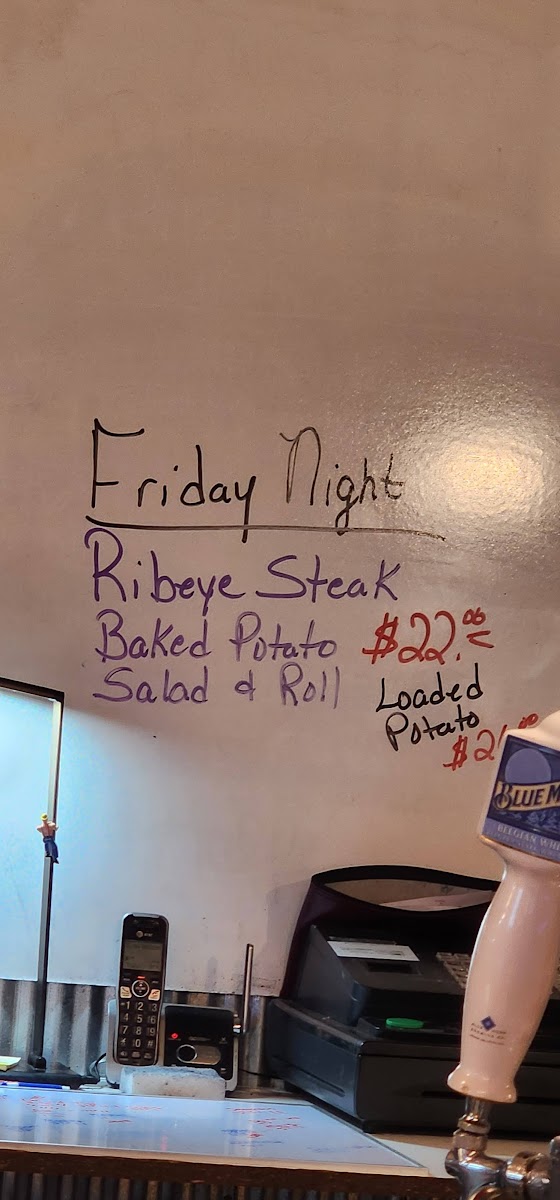 Friday Night
Ribeye Steak
Baked Potato $22.00
Salad & Roll
Loaded
Potato
BLUE M
BELGIAN WHI
at&t
1 2 3
4 5 6
7 8 9
0